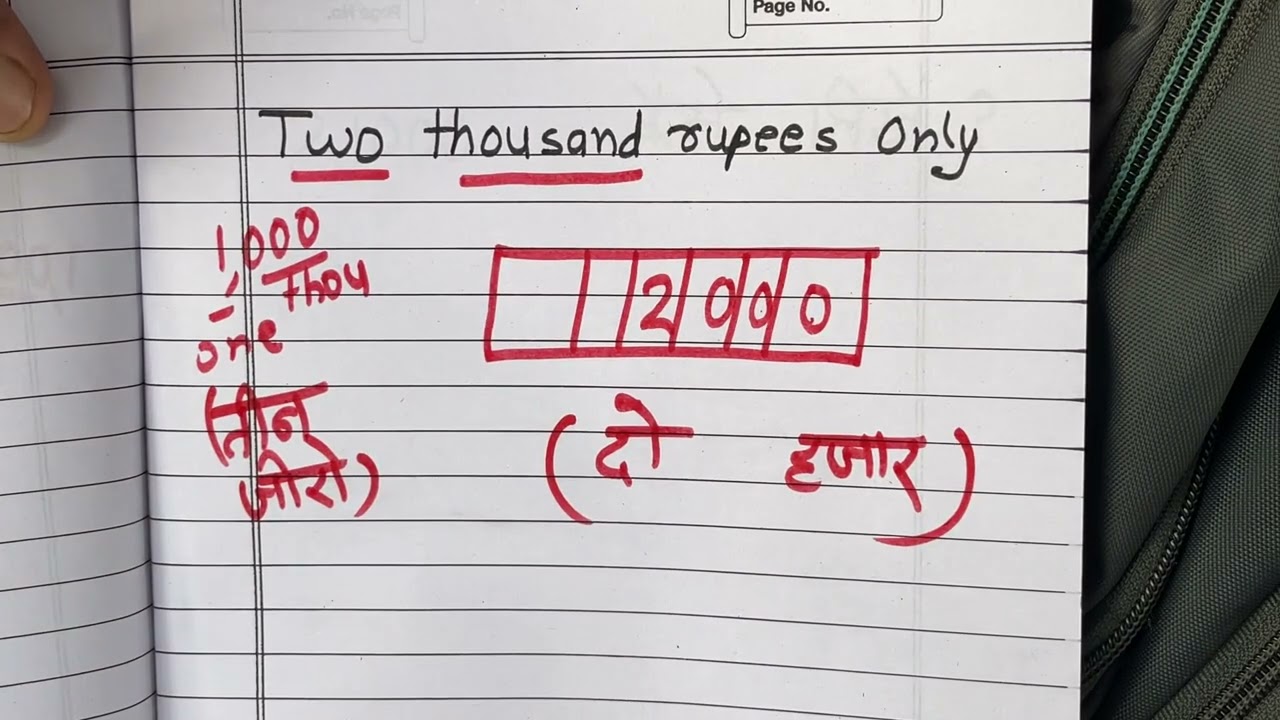 Page No.
Two thousand rupees only
1,000
Thou
one
(तीन
जीरो)
2000
(दो हजार)